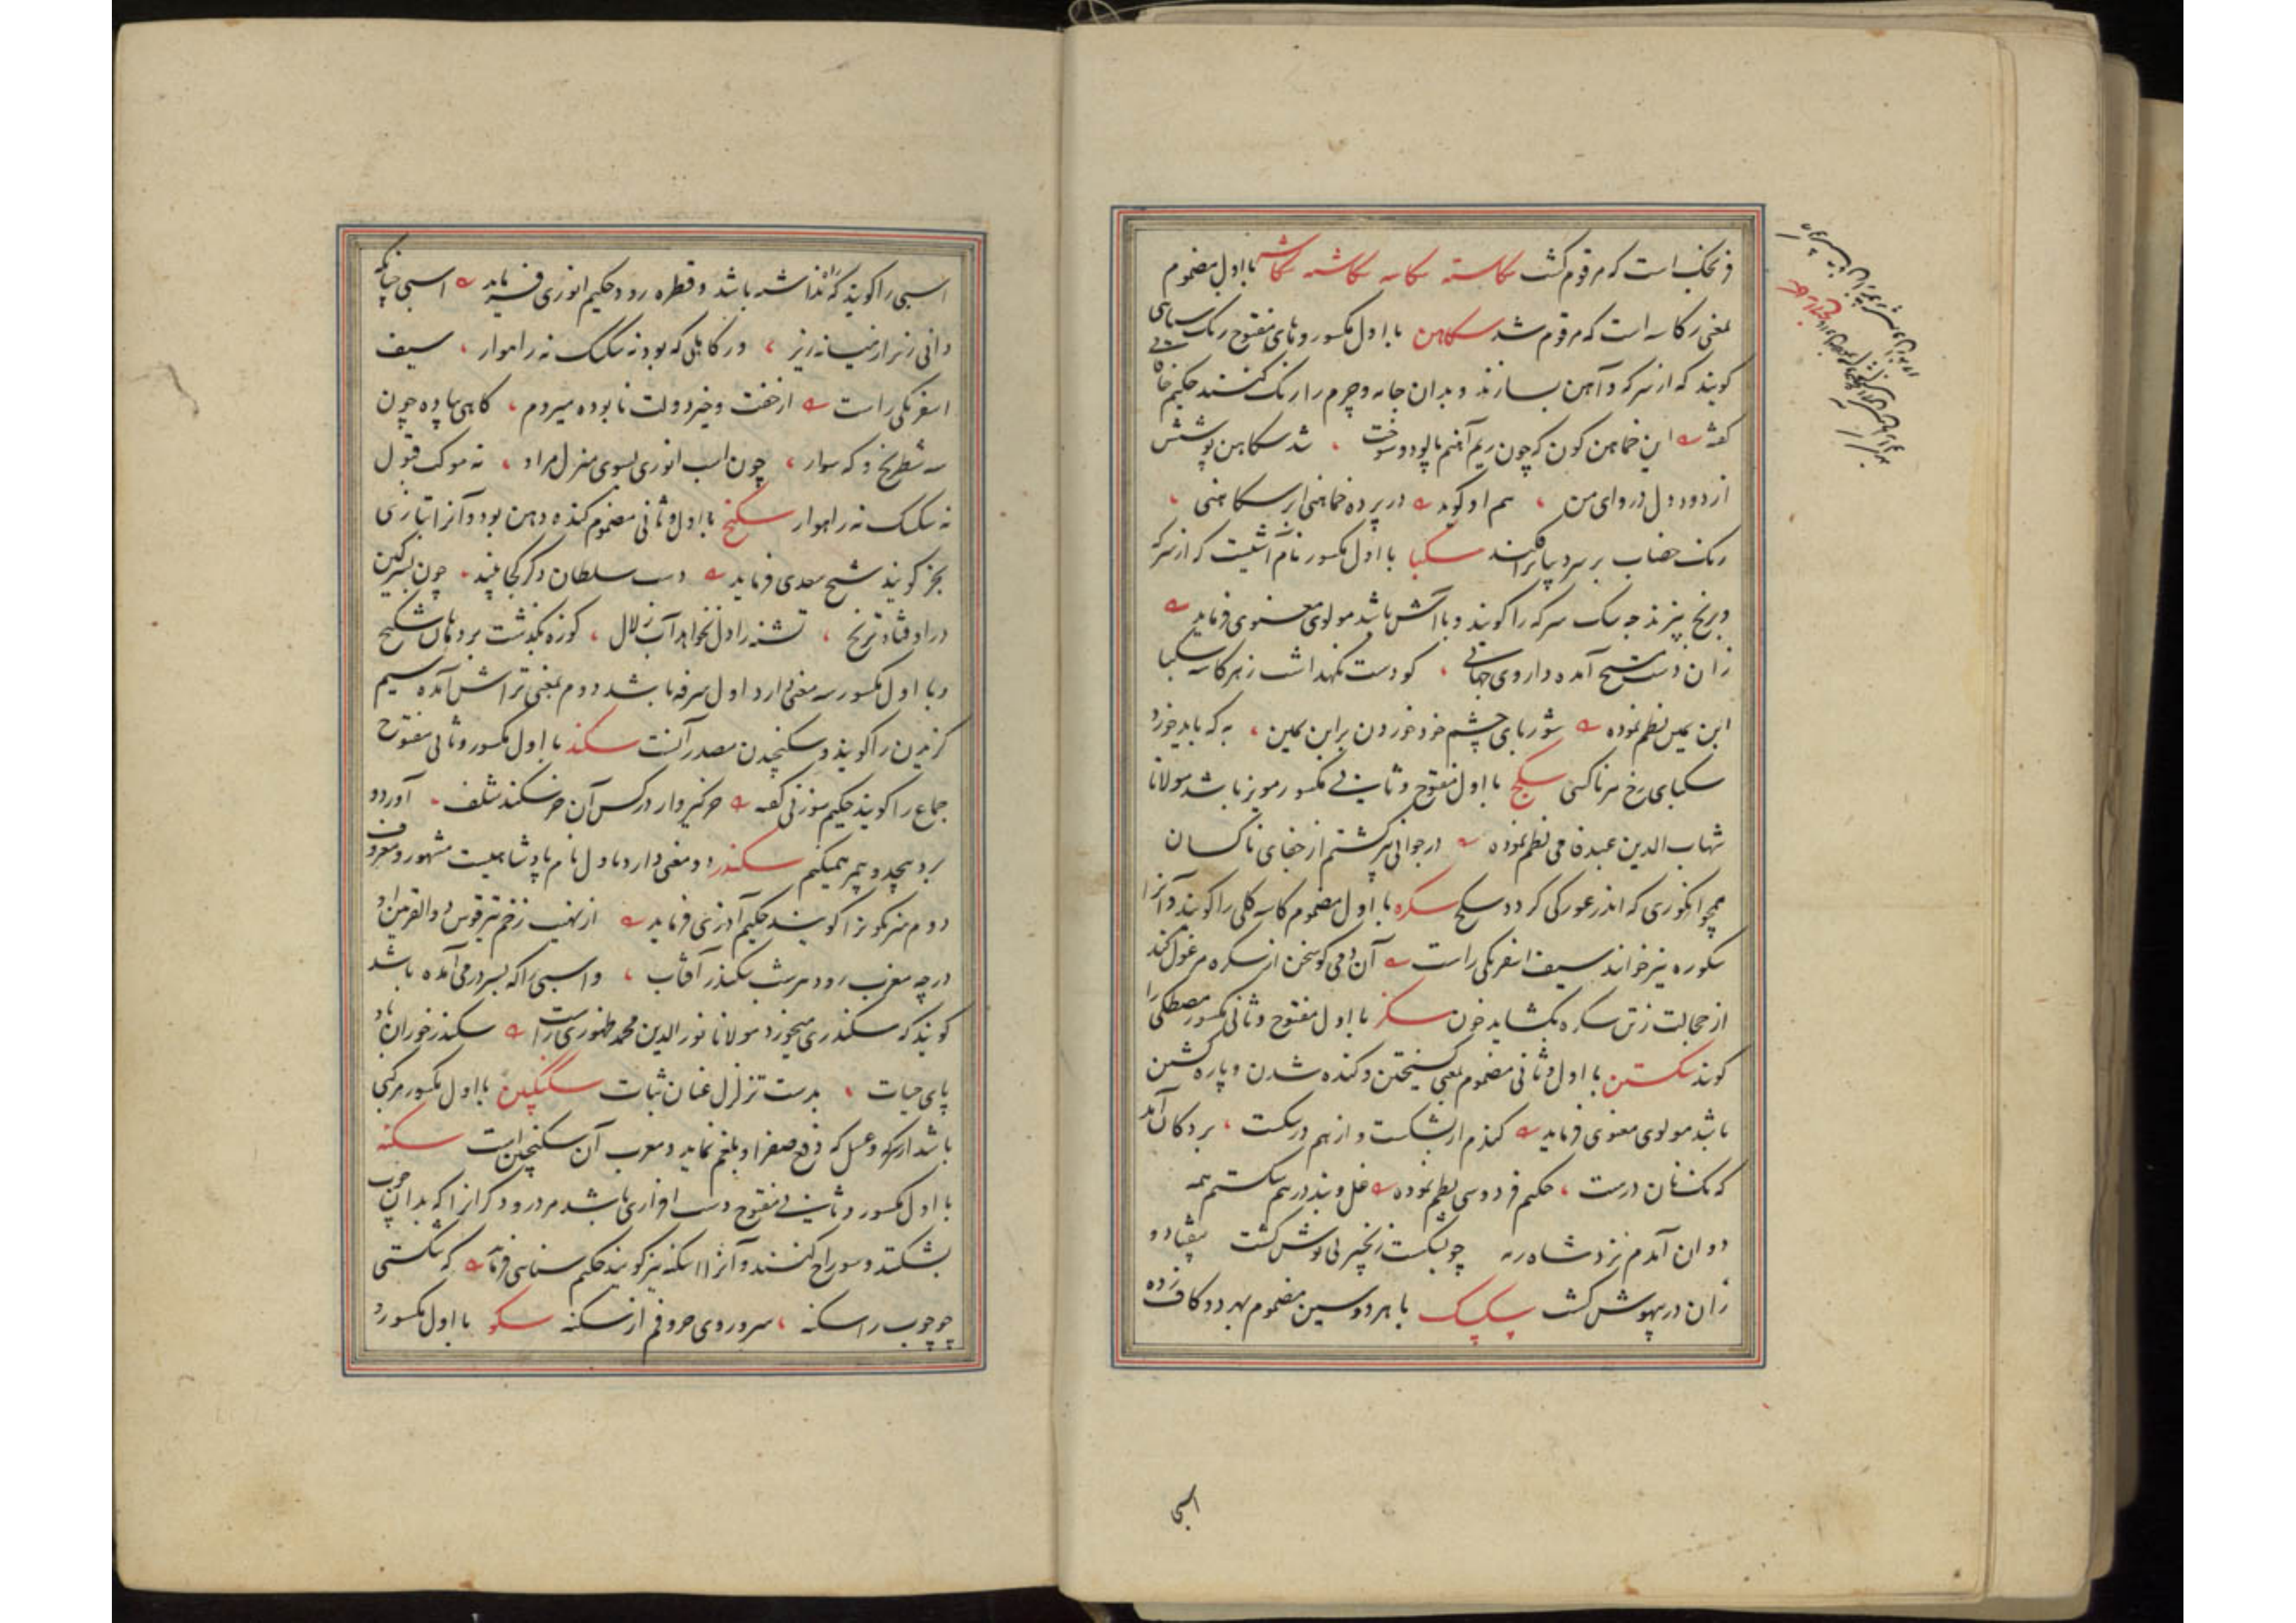 و نمک است که مرقوم گشت سکاسته سکاسه سکاشه سکاشه با اول مضموم
بمعنی رکاسه است که مرقوم شد سکاهن با اول مکسور و های مفتوح رنگ سیاهی
کویند که از سرکه و آهن بسازند و بدان جامه و چرم را رنگ کنند حکیم خاقانی
کفته این خماهن کون که چون ریم آهنم پالود و سوخت شد سکاهن پوشش
از دود دل دروای من هم او کوید در پرده خماهنی ابر سکاهنی
رنگ خضاب بر سر دنیا برافکند سکبا با اول مکسور نام آشیست که از سرکه
و برنج پزند چه سک سرکه را کویند و با آش باشد مولوی معنوی فرماید
زان دست مسیح آمده داروی جهانی کو دست نکهداشت ز هر کاسه سکبا
ابن یمین نظم نموده شوربای چشم خود خوردن بر ابن یمین به که باید خورد
سکبای رخ هر ناکسی سکج با اول مفتوح و ثانی مکسور مویز باشد مولانا
شهاب الدین عبد نظم نموده در جوانی پیر کشتم از جفای ناکسان
همچو انکوری که اندر غورکی کردد سکج سکره با اول مضموم کاسه کلی را کویند و آنرا
سکوره نیز خوانند سیف اسفرنکی راست آن دمی کو سخن از سکره مرغول کند
از خجالت زتن سکره بکشاید خون سکز با اول مفتوح و ثانی مکسور مصطکی را
کویند سکستن با اول و ثانی مضموم بمعنی کسیختن و کنده شدن و پاره کشتن
باشد مولوی معنوی فرماید کندم ار بشکست و از هم در سکست بر دکان آمد
که نک نان درست حکیم فردوسی نظم نموده غل و بند در هم سکستم همه
دوان آمدم نزد شاه رمه چو بسکست زنجیر بی توش کشت بیفتاد و
زان درد بیهوش کشت سکسک با هر دو سین مضموم بهر دو کاف زده
اسبی
اسبی را کویند که راه نداشته باشد و قطره رود حکیم انوری فرماید اسبی چنانکه
دانی زیر از میانه زیر وز کاهلی که بود نه سکسک نه راهوار سیف
اسفرنکی راست از خفت و خیز دولت نابوده میروم کاهی پیاده چون
شه شطرنج و که سوار چون اسب انوری بسوی منزل مراد نه موکب قبول
نه سکسک نه راهوار سکنج با اول و ثانی مضموم کنده دهن بود و آنرا بتازی
بخر کویند شیخ سعدی فرماید دست سلطان دکر کجا بیند چون بسرکین
در اوفتاد ترنج تشنه را دل نخواهد آب زلال کوزه بکذشت بر دهان سکنج
و با اول مکسور سه معنی دارد اول سرفه باشد دوم بمعنی تراش آمده سیم
کزیدن را کویند و سکنجیدن مصدر آنست سکند با اول مکسور و ثانی مفتوح
جماع را کویند حکیم سوزنی کفته
سکندر دو معنی دارد اول نام پادشاهیست مشهور و معروف
دوم سرنکون را کویند حکیم آذری فرماید از نهیب زخم تیر قوس ذوالقرنین او
در چه مغرب رود هر شب سکندر آفتاب و اسبی را که بسر در می آمده باشد
کویند که سکندری میخورد مولانا نور الدین محمد ظهوری راست سکندر خوران باد
پای حیات بدست تزلزل عنان ثبات سکنکبین با اول مکسور مرکبی
باشد از سرکه و عسل که دفع صفرا و بلغم نماید و معرب آن سکنجبین است سکنه
با اول مکسور و ثانی مفتوح دست افزاری باشد مر درودکرانرا که بدان چوب
بشکنند و سوراخ کنند و آنرا اسکنه نیز کویند حکیم سنائی فرماید که شکستی
چو چوب را سکنه سر و روی حروفم از سکنه سکو با اول مکسور و